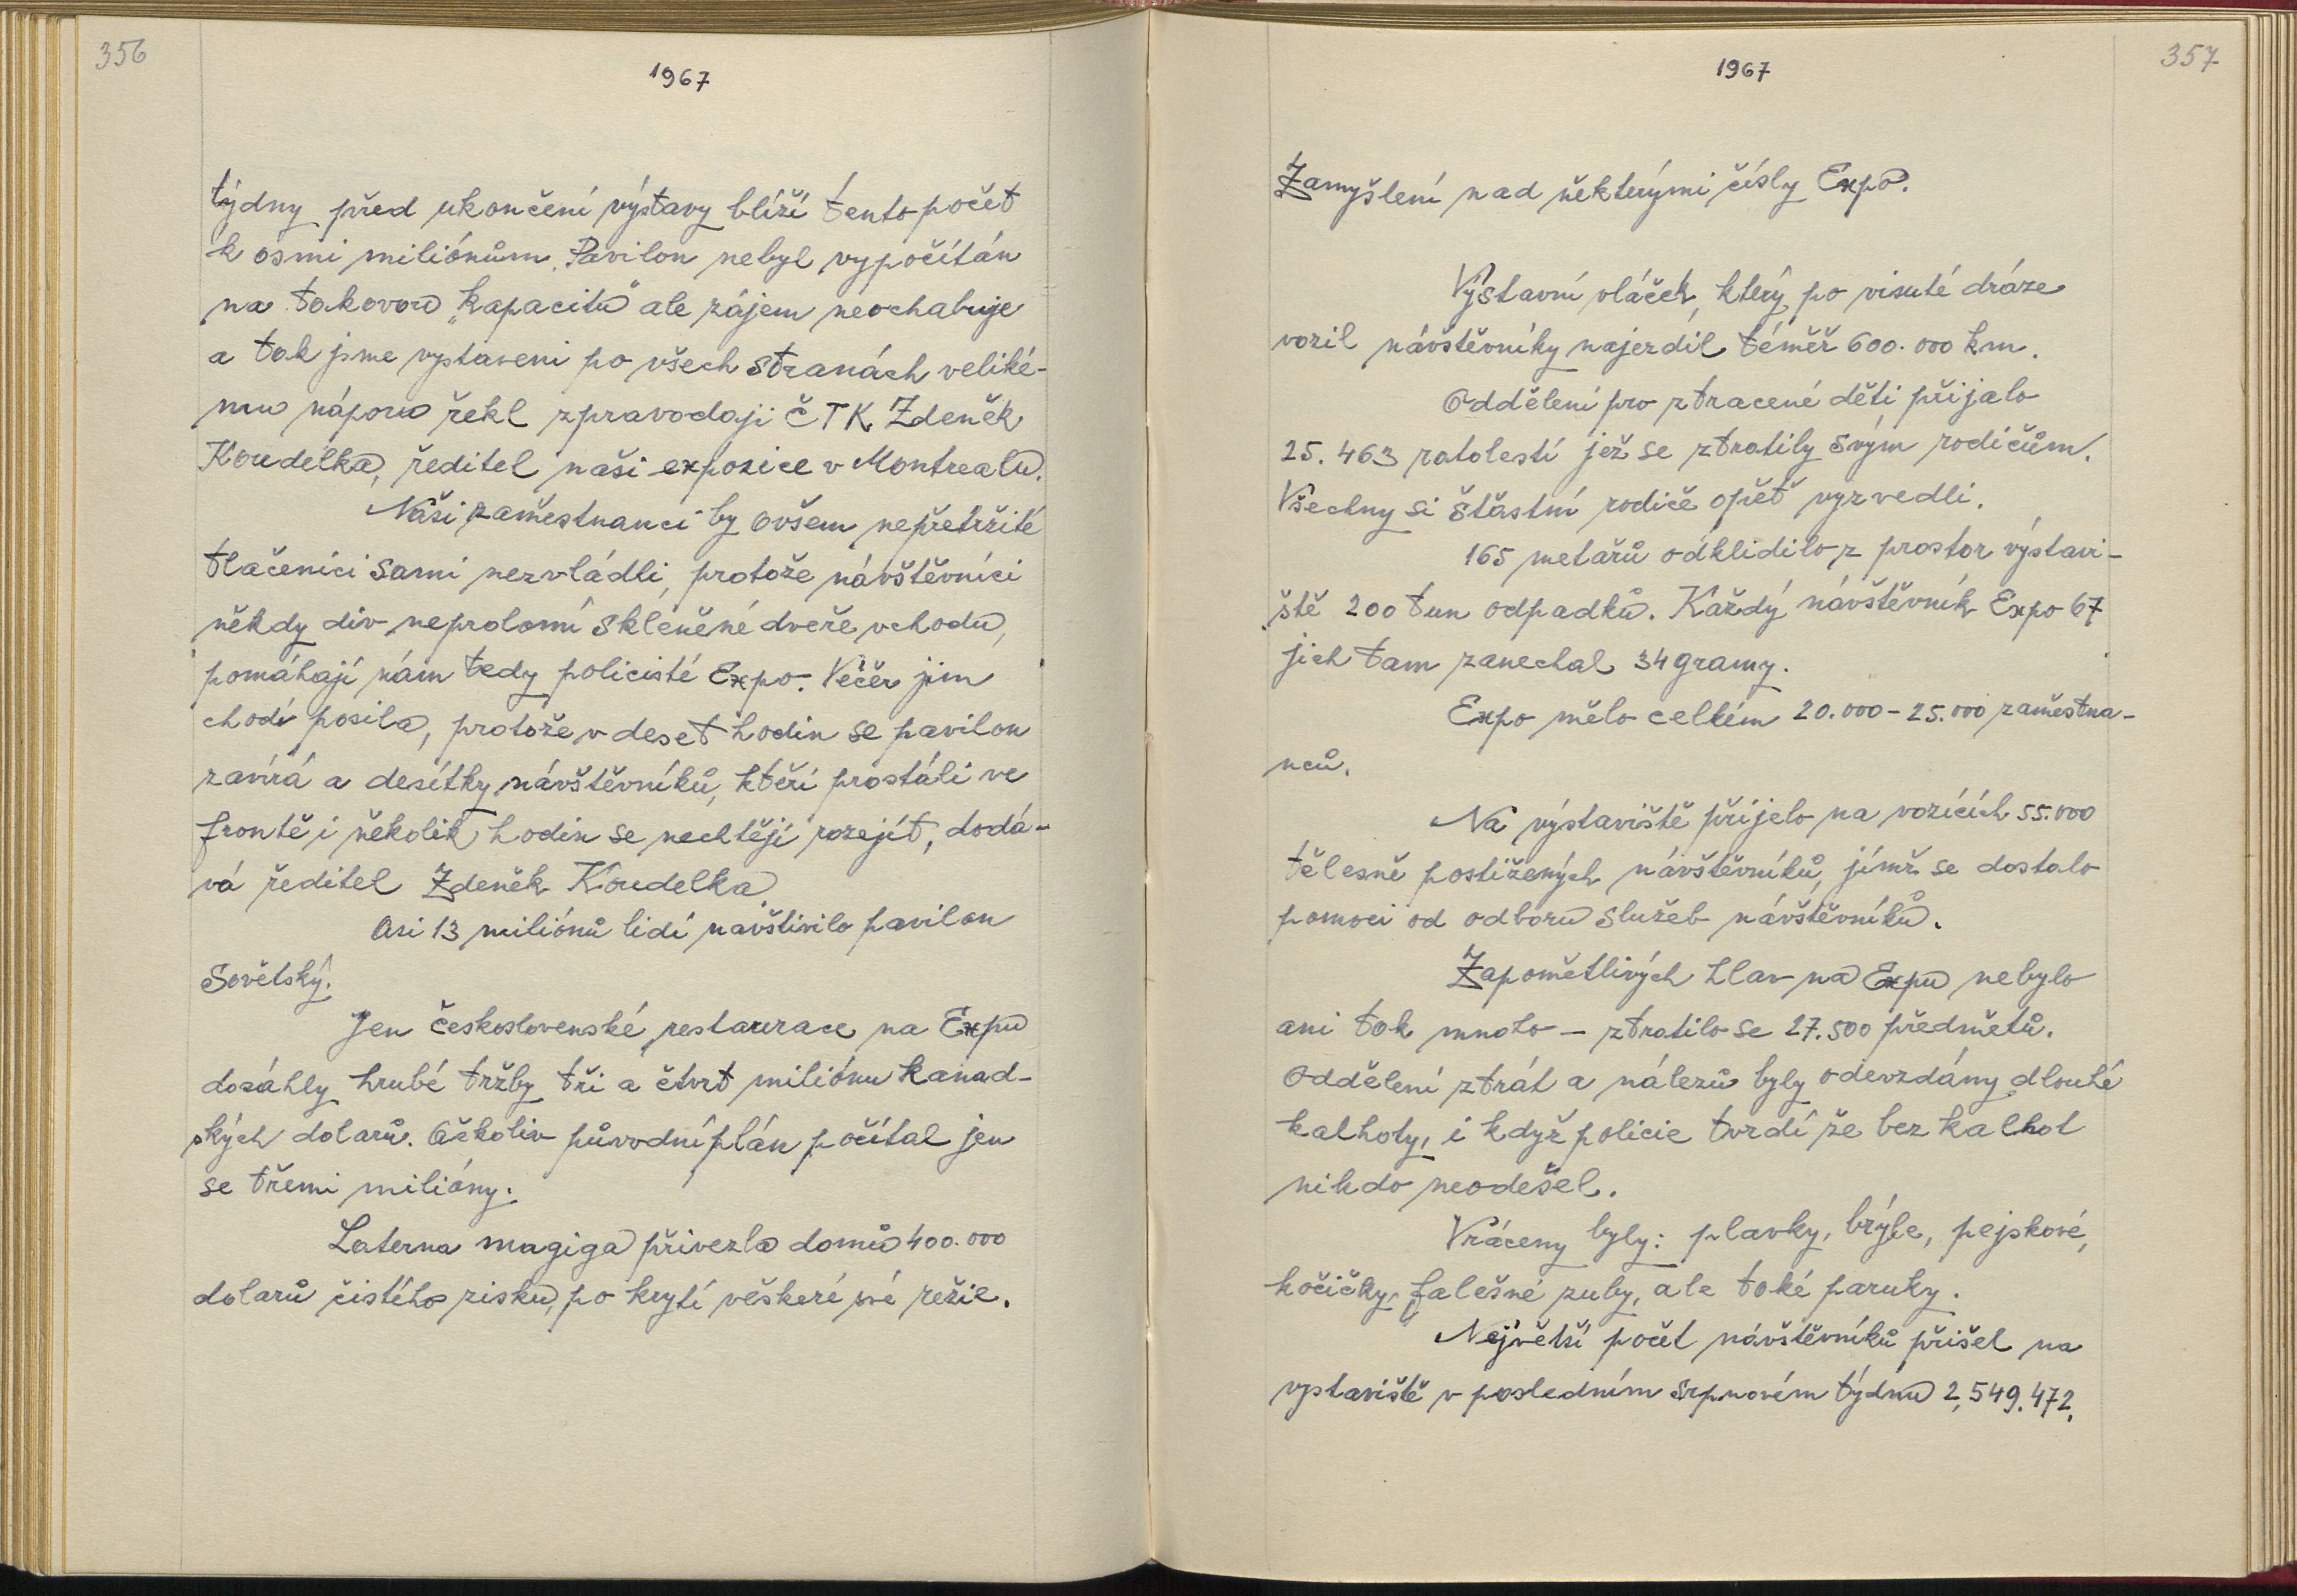 356
1967
týdny před ukončení výstavy blíží tento počet
k osmi miliónům. Pavilon nebyl vypočítán
na takovou „kapacitu" ale zájem neochabuje
a tak jsme vystaveni po všech stranách veliké-
mu náporu řekl zpravodaji ČTK Zdeněk
Koudelka, ředitel naši expozice v Montrealu.
Naši zaměstnanci by ovšem nepřetržité
tlačenici sami nezvládli, protože návštěvníci
někdy div neprolomí skleněné dveře vchodu,
pomáhají nám tedy policisté Expo. Večer jim
chodí posila, protože v deset hodin se pavilon
zavírá a desítky návštěvníků, kteří prostáli ve
frontě i několik hodin se nechtějí rozejít, dodá-
vá ředitel Zdeněk Koudelka.
Asi 13 miliónů lidí navštívilo pavilon
Sovětský.
Jen československé restaurace na Expu
dosáhly hrubé tržby tři a čtvrt miliónu kanad-
ských dolarů. Ačkoliv původní plán počítal jen
se třemi milióny.
Laterna magiga přivezla domů 400.000
dolarů čistého zisku, po krytí veškeré své režie.
357
1967
Zamyšlení nad některými čísly Expo.
Výstavní vláček, který po visuté dráze
vozil návštěvníky najezdil téměř 600.000 km.
Oddělení pro ztracené děti přijalo
25.463 ratolestí jež se ztratily svým rodičům.
Všechny si šťastní rodiče opět vyzvedli.
165 metařů odklidilo z prostor výstavi-
ště 200 tun odpadků. Každý návštěvník Expo 67
jich tam zanechal 34 gramy.
Expo mělo celkem 20.000-25.000 zaměstna-
nců.
Na výstaviště přijelo na vozících 55.000
tělesně postižených návštěvníků, jímž se dostalo
pomoci od odboru služeb návštěvníků.
Zapomětlivých hlav na Expu nebylo
ani tak mnoho - ztratilo se 27.500 předmětů.
Oddělení ztrát a nálezů byly odevzdány dlouhé
kalhoty, i když policie tvrdí že bez kalhot
nikdo neodešel.
Vráceny byly: plavky, brýle, pejskové,
kočičky, falešné zuby, ale také paruky.
Největší počet návštěvníků přišel na
vystaviště v posledním srpnovém týdnu 2,549.472.